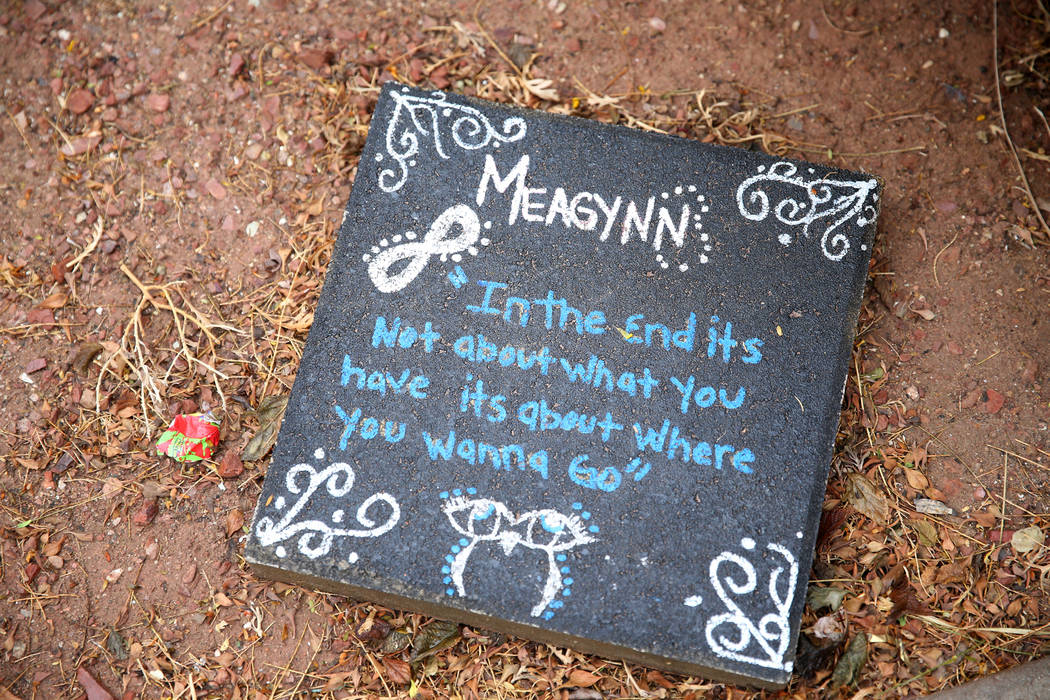 MEAGYNN
"In the End it's
Not about What You
have its about Where
You Wanna Go"